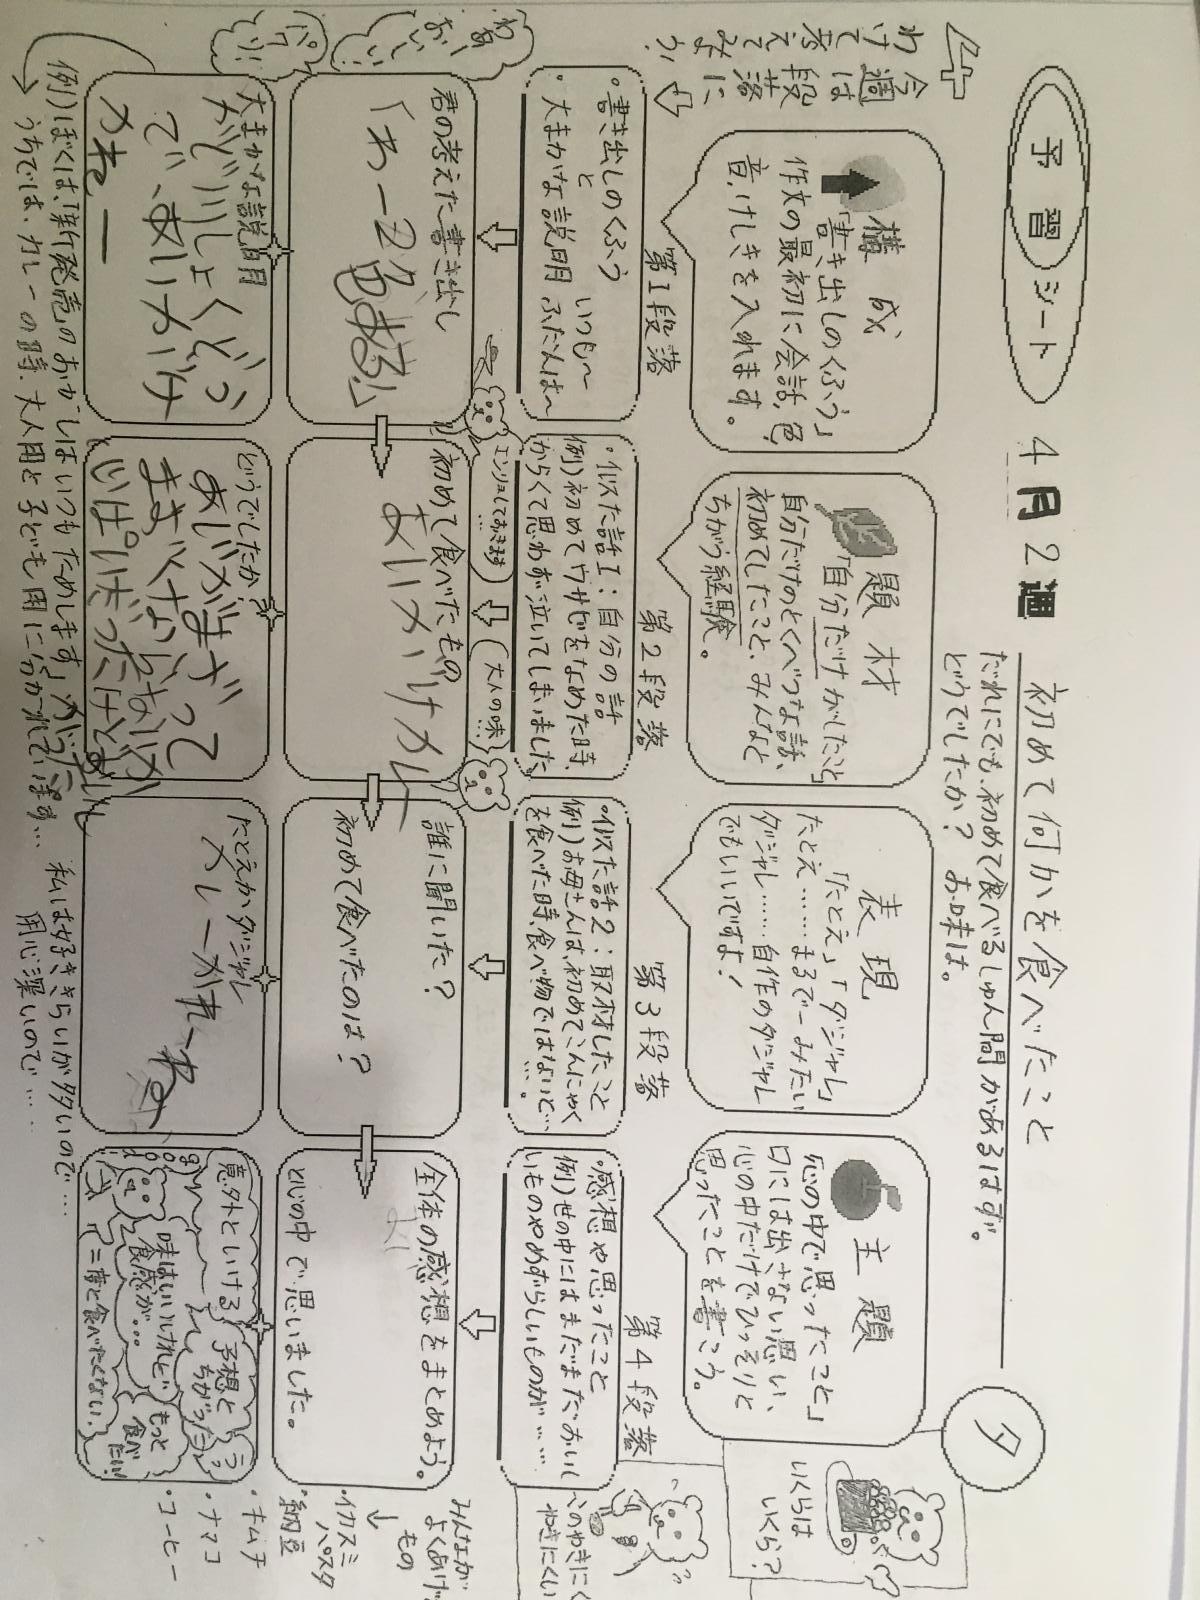 予習シート 4月2週 初めて何かを食べたこと
だれにでも、初めて食べるしゅん間があるはず。
どうでしたか? お味は。
夕
4
今週は段落に
わけて考えてみよう!
構成
「書き出しのくふう」
作文の最初に会話、色、
音、けしきを入れます。
題材
「自分だけがしたこと」
自分だけのとくべつな話、
初めてしたこと、みんなと
ちがう経験。
表現
「たとえ」「ダジャレ」
たとえ……まるで〜みたい
ダジャレ……自作のダジャレ
でもいいですよ!
主題
「心の中で思ったこと」
口には出さない思い、
心の中だけでひっそりと
思ったことを書こう。
いくらは
いくら?
第1段落
・書き出しのくふう
と
・大まかな説明
いつも〜
ふだんは〜
第2段落
・似た話1:自分の話
例)初めてワサビをなめた時、
からくて思わず泣いてしまいました
第3段落
・似た話2:取材したこと
例)お母さんは、初めてこんにゃく
を食べた時、食べ物ではないと…
第4段落
・感想や思ったこと
例)世の中にはまだまだおいし
いものやめずらしいものが……
わあ
おいしい
パクリ!
エンリョしておきます…
大人の味…
君の考えた書き出し
「わー2色
もある!」
初めて食べたもの
あいがけカレー
誰に聞いた?
初めて食べたのは?
全体の感想をまとめよう。
と心の中で思いました。
大まかな説明
がどうでしたか?
たとえかダジャレ
カレーかれーね
意外といける
予想と
ちがった
味はいいけれど
食感が…
もっと
食べ
たい!
二度と食べたくない
みんなが
よくあげ
もの
・イカスミ
パスタ
・納豆
・キムチ
・ナマコ
・コーヒー
例)ぼくは、新発売のおかしはいつもためします
うちでは、カレーの時、大人用と子ども用に分かれています…
私は好ききらいが多いので…
用心深いので……